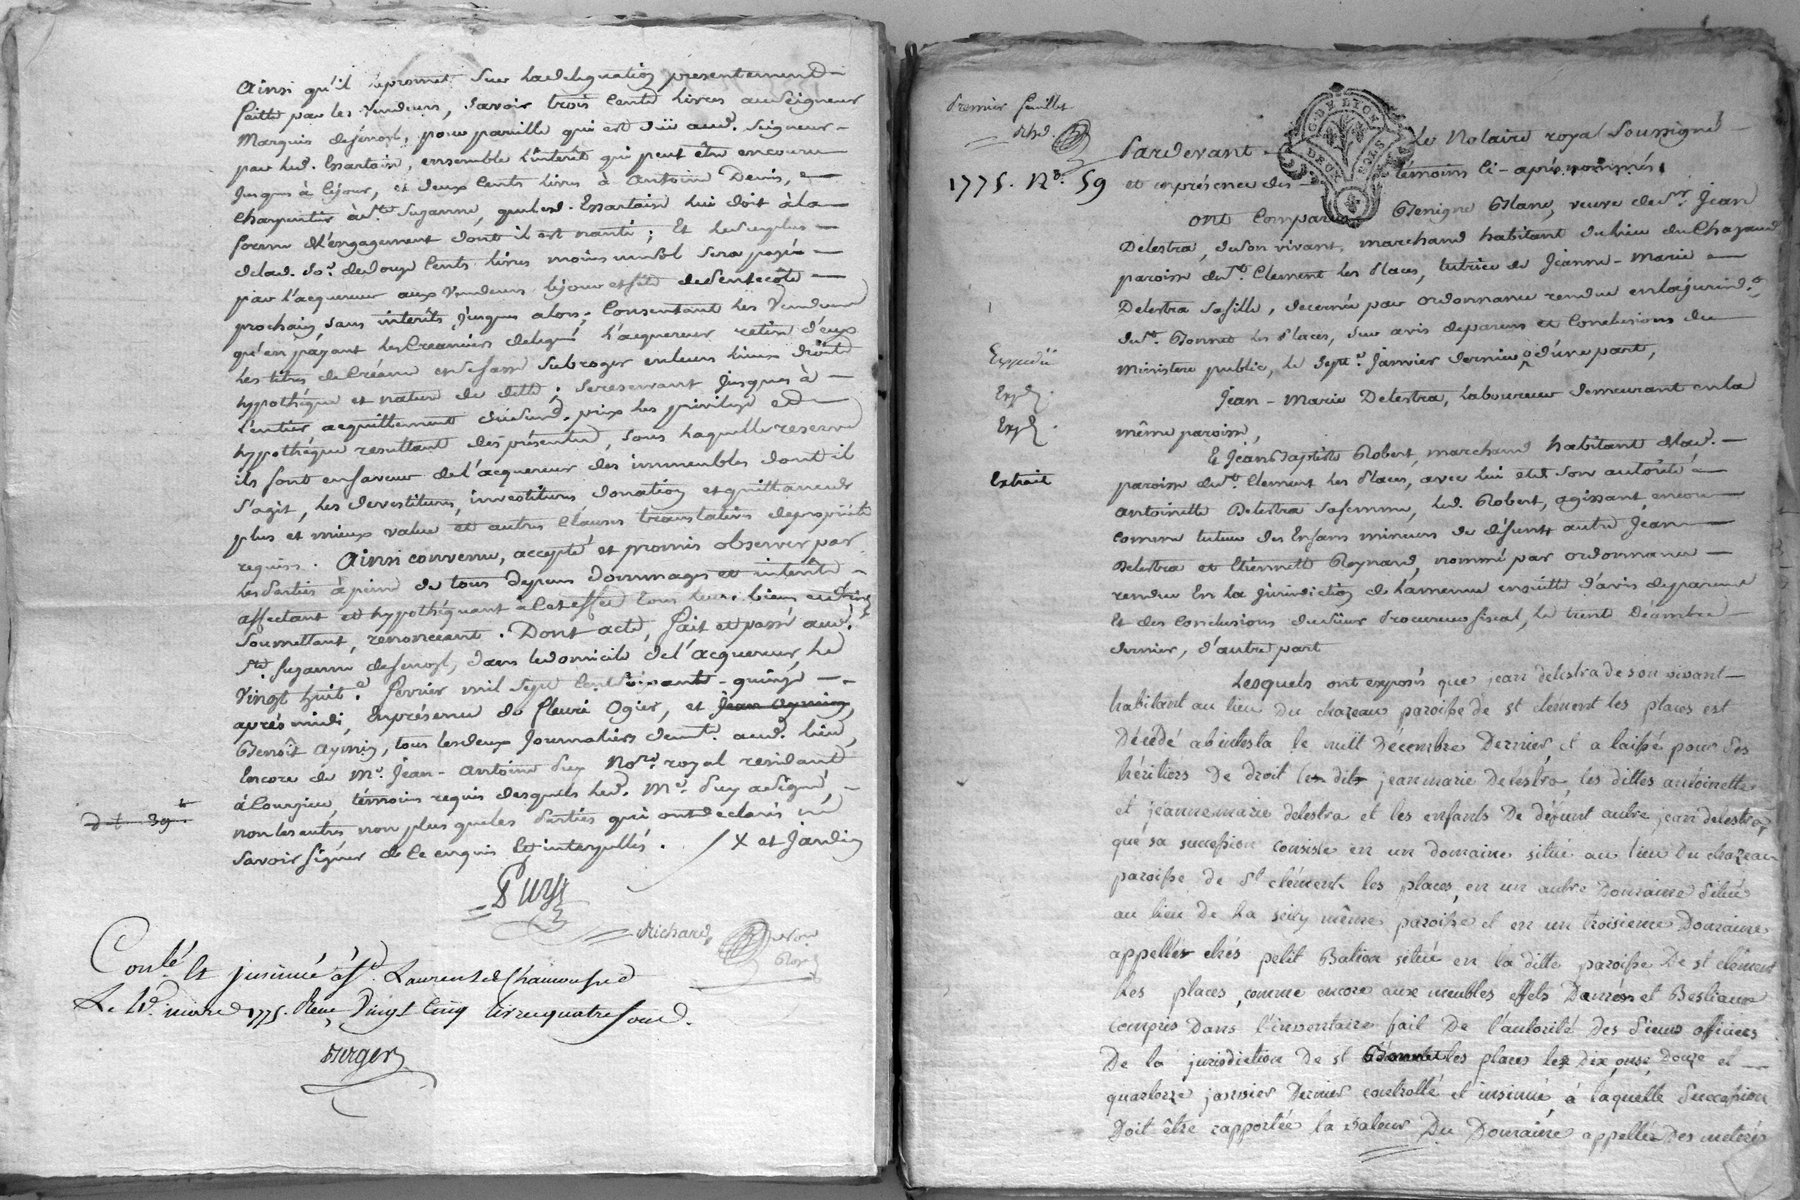 Ainsi qu'il le promet sur la delegation presentement
faitte par les vendeurs, savoir trois cents livres au Seigneur
Marquis de pour pareille qui est düe aud. Seigneur
par led. Essartain, ensemble l'interêt qui peut être encouru
jusques à ce jour, et deux cents livres à Antoine Denis,
Charpentier à Ste Suzanne, que led. Essartain lui doit à la
forme de l'engagement dont il est nanti; Et le surplus
de lad. so.e de douze cents livres moins un sol sera payée
par l'acquereur aux vendeurs le jour et fête de Pentecôte
prochain, sans interêts jusques alors; Consentant les Vendeurs
qu'en payant les Creanciers delegués l'acquereur retire d'eux
les titres de Creance et se fasse subroger en leurs lieux droits
hypothèque et nature de dette; se reservant jusques à
l'entier acquittement dud. prix les privilege et
hypothèque resultant des présentes, sous laquelle reserve
ils font en faveur de l'acquereur des immeubles dont il
s'agit, les devestitures, investitures donation et quittance de
plus et mieux value et autres clauses translatives de propriété
requises. Ainsi convenu, accepté et promis observer par
les Parties à peine de tous depens dommages et interêts
affectant et hypothéquant à cet effet tous leurs biens
soumettant, renonceant. Dont acte, fait et passé aud.
Ste Suzanne dans le domicile de l'acquereur, le
vingt huit.e fevrier mil sept cent soixante-quinze
après midi, En présence de Fleuri Ogier, et Jean Aymin,
Benoît Aymin, tous les deux Journaliers demt. aud. lieu,
Encore de Me. Jean-Antoine Puy Nore. royal residant
à Courzieu, témoins requis desquels led. Me. Puy a signé,
non les autres non plus que les Parties qui ont declaré ne
savoir signer de ce enquis et interpellés. / X et Jardin
Puy
Richard, Nore
Roy.
Conlé. et insinué à St. Laurent de Chamousset
Le 10. mars 1775. Reçu Vingt Cinq livres quatre sous.
Berger
Premier feuillet
1775. No. 59
Expédié
Exp.
Exp.
Extrait
C. DE LYON
DEUX SOLS
Pardevant le Notaire royal soussigné
et en présence des témoins ci-après nommés
ont comparu Benigne Blanc, veuve de Sr. Jean
Delestra, de son vivant, marchand habitant du lieu du Chazaud
paroisse de St. Clement les Places, tutrice de Jeanne-Marie
Delestra sa fille, decernée par ordonnance rendue en la jurisd.on
de St. Bonnet les Places, sur avis de parens et Conclusions du
ministere public, le sept.e Janvier dernier d'une part,
Jean-Marie Delestra, laboureur demeurant en la
même paroisse,
Et Jean Baptiste Robert, marchand habitant de lad.
paroisse de St. Clement les Places, avec lui et de son autorité
Antoinette Delestra sa femme, led. Robert, agissant encore
comme tuteur des Enfans mineurs de défunt autre Jean
Delestra et Etiennette Reynard, nommé par ordonnance
rendue En la jurisdiction de ensuitte d'avis de parents
Et des Conclusions du Sieur Procureur fiscal, le trente Décembre
dernier, d'autre part
Lesquels ont exposés que jean delestra de son vivant
habitant au lieu Du chazeau paroisse de st clément les places est
Décédé abintesta le huit Décembre Dernier et a laissé pour ses
héritiers De droit les dits jean marie Delestra, les dittes antoinette
et jeanne marie delestra et les enfants De défunt autre jean delestra,
que sa succession consiste en un domaine situé au lieu Du chazeau
paroisse de St clément les places, en un autre Domaine situé
au lieu De la même paroisse et en un troisieme Domaine
appellés chés petit Balion situé en la ditte paroisse De st clément
les places, comme encore aux meubles effets Danrées et Bestiaux
compris Dans l'inventaire fait De l'autorité des sieurs officiers
De la jurisdiction de st Bonnet les places les dix, onse, Douze et
quatorze janvier Dernier controllé et insinué à laquelle succession
Doit être rapportée la valeur Du Domaine appellés Des